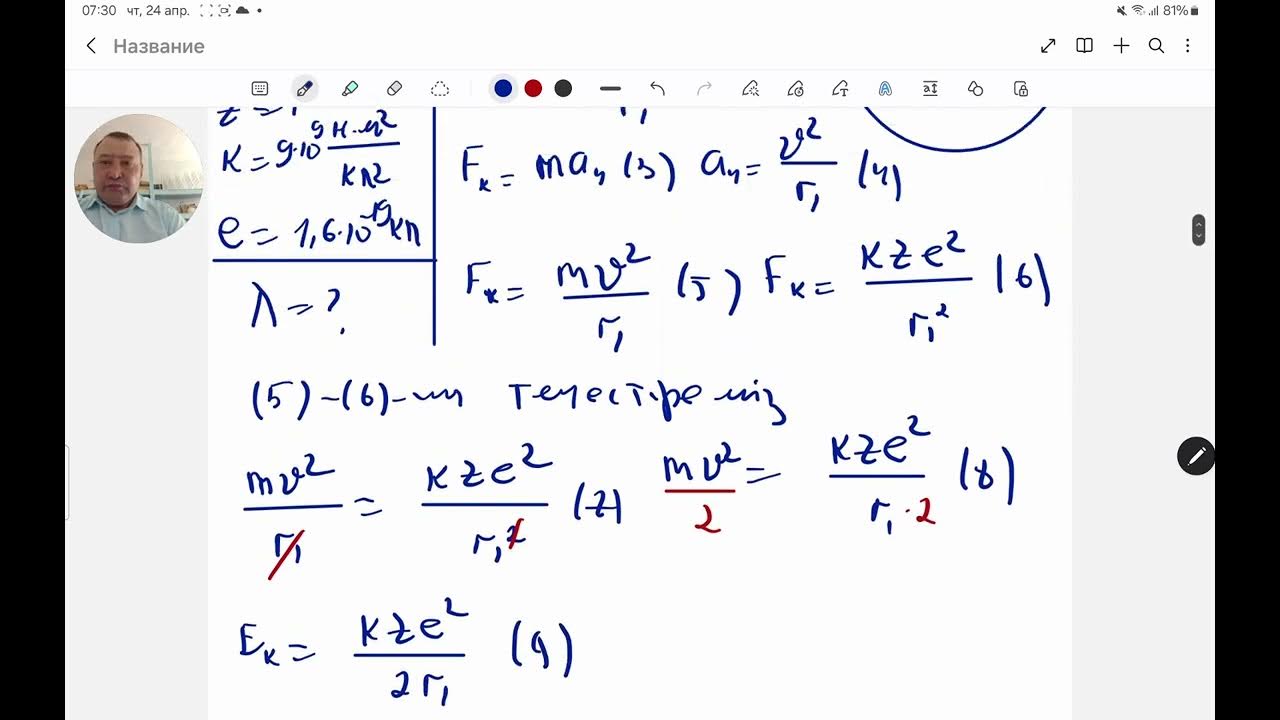 07:30 чт, 24 апр. 81%
Название
K = 9·10⁹ Н·м²/Кл²
e = 1,6·10⁻¹⁹ Кл
λ = ?
Fₖ = maₙ (3) aₙ = v²/r₁ (4)
Fₖ = mv²/r₁ (5) Fₖ = kze²/r₁² (6)
(5)-(6)-ны теңестіреміз
mv²/r₁ = kze²/r₁² (7) mv²/2 = kze²/r₁·2 (8)
Eₖ = kze²/2r₁ (9)